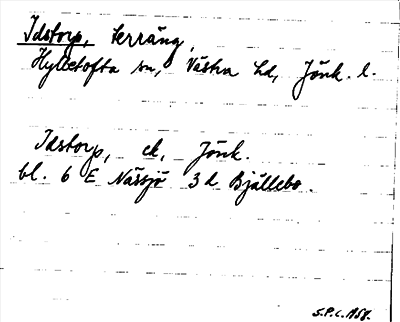 Idstorp, terräng,
Hylletofta sn, Västra hd, Jönk. l.
Idstorp, ek, Jönk.
bl. 6 E Nässjö 3 d Bjällebo.
S.P.C. 1958.